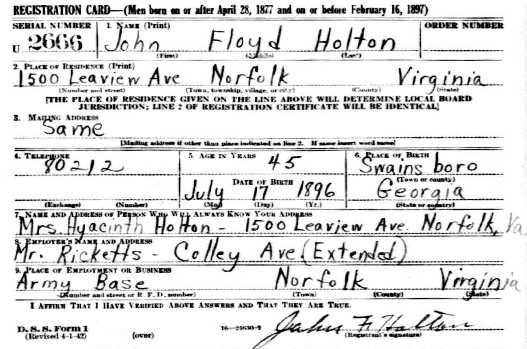 REGISTRATION CARD—(Men born on or after April 28, 1877 and on or before February 16, 1897)
SERIAL NUMBER 1. NAME (Print) ORDER NUMBER
U 2666 John Floyd Holton
(First) (Middle) (Last)
2. PLACE OF RESIDENCE (Print)
1500 Leaview Ave Norfolk Virginia
(Number and street) (Town, township, village, or city) (County) (State)
[THE PLACE OF RESIDENCE GIVEN ON THE LINE ABOVE WILL DETERMINE LOCAL BOARD
JURISDICTION; LINE 2 OF REGISTRATION CERTIFICATE WILL BE IDENTICAL]
3. MAILING ADDRESS
Same
[Mailing address if other than place indicated on line 2. If same insert word same]
4. TELEPHONE 5. AGE IN YEARS 6. PLACE OF BIRTH
80212 45 Swainsboro
DATE OF BIRTH (Town or county)
July 17 1896 Georgia
(Exchange) (Number) (Mo.) (Day) (Yr.) (State or country)
7. NAME AND ADDRESS OF PERSON WHO WILL ALWAYS KNOW YOUR ADDRESS
Mrs. Hyacinth Holton - 1500 Leaview Ave. Norfolk, Va
8. EMPLOYER'S NAME AND ADDRESS
Mr. Ricketts - Colley Ave (Extended)
9. PLACE OF EMPLOYMENT OR BUSINESS
Army Base Norfolk Virginia
(Number and street or R. F. D. number) (Town) (County) (State)
I AFFIRM THAT I HAVE VERIFIED ABOVE ANSWERS AND THAT THEY ARE TRUE.
D. S. S. Form 1
(Revised 4-1-42) (over) John F Holton
(Registrant's signature)